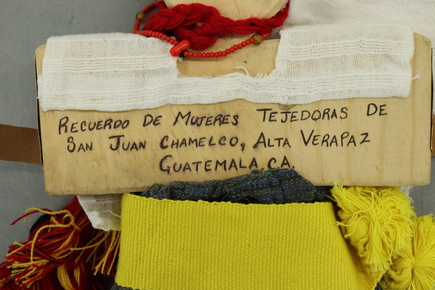 RECUERDO DE MUJERES TEJEDORAS DE
SAN JUAN CHAMELCO, ALTA VERAPAZ
GUATEMALA, CA.